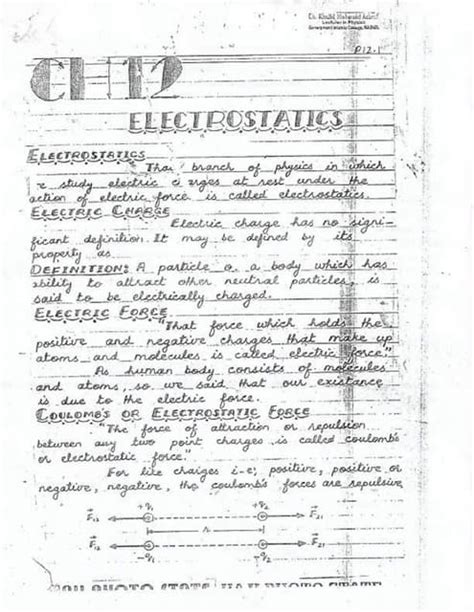 Ch. Khalid Mehmood
Lecturer in Physics
Government Islamia College,
P12.1
CH-12
ELECTROSTATICS
ELECTROSTATICS
That branch of physics in which
we study electric charges at rest under the
action of electric force is called electrostatics.
ELECTRIC CHARGE
Electric charge has no signi-
ficant definition. It may be defined by its
property as
DEFINITION: A particle or a body which has
ability to attract other neutral particles, is
said to be electrically charged.
ELECTRIC FORCE
"That force which holds the
positive and negative charges that make up
atoms and molecules is called electric force."
As human body consists of molecules
and atoms, so we said that our existance
is due to the electric force.
COULOMB'S OR ELECTROSTATIC FORCE
"The force of attraction or repulsion
between any two point charges is called coulomb's
or electrostatic force."
For like charges i-e; positive, positive or
negative, negative, the coulomb's forces are repulsive
F12 +q1 +q2 F21
r
F12 -q1 -q2 F21
PHOTO STATE PHOTO STATE